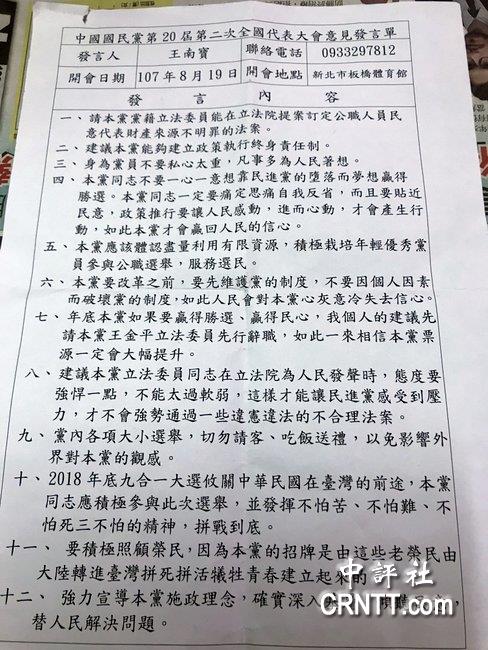 中國國民黨第20屆第二次全國代表大會意見發言單
發言人 王南寶 聯絡電話 0933297812
開會日期 107年8月19日 開會地點 新北市板橋體育館
發言內容
一、請本黨黨籍立法委員能在立法院提案訂定公職人員民
意代表財產來源不明罪的法案。
二、建議本黨能夠建立政策執行終身責任制。
三、身為黨員不要私心太重，凡事多為人民著想。
四、本黨同志不要一心一意想靠民進黨的墮落而夢想贏得
勝選。本黨同志一定要痛定思痛自我反省，而且要貼近
民意，政策推行要讓人民感動，進而心動，才會產生行
動，如此本黨才會贏回人民的信心。
五、本黨應該體認盡量利用有限資源，積極栽培年輕優秀黨
員參與公職選舉，服務選民。
六、本黨要改革之前，要先維護黨的制度，不要因個人因素
而破壞黨的制度，如此人民會對本黨心灰意冷失去信心。
七、年底本黨如果要贏得勝選、贏得民心，我個人的建議先
請本黨王金平立法委員先行辭職，如此一來相信本黨票
源一定會大幅提升。
八、建議本黨立法委員同志在立法院為人民發聲時，態度要
強悍一點，不能太過軟弱，這樣才能讓民進黨感受到壓
力，才不會強勢通過一些違憲違法的不合理法案。
九、黨內各項大小選舉，切勿請客、吃飯送禮，以免影響外
界對本黨的觀感。
十、2018年底九合一大選攸關中華民國在臺灣的前途，本黨
同志應積極參與此次選舉，並發揮不怕苦、不怕難、不
怕死三不怕的精神，拼戰到底。
十一、要積極照顧榮民，因為本黨的招牌是由這些老榮民由
大陸轉進臺灣拼死拼活犧牲青春建立起來的
十二、強力宣導本黨施政理念，確實深入
替人民解決問題。
中評社
CRNTT.com